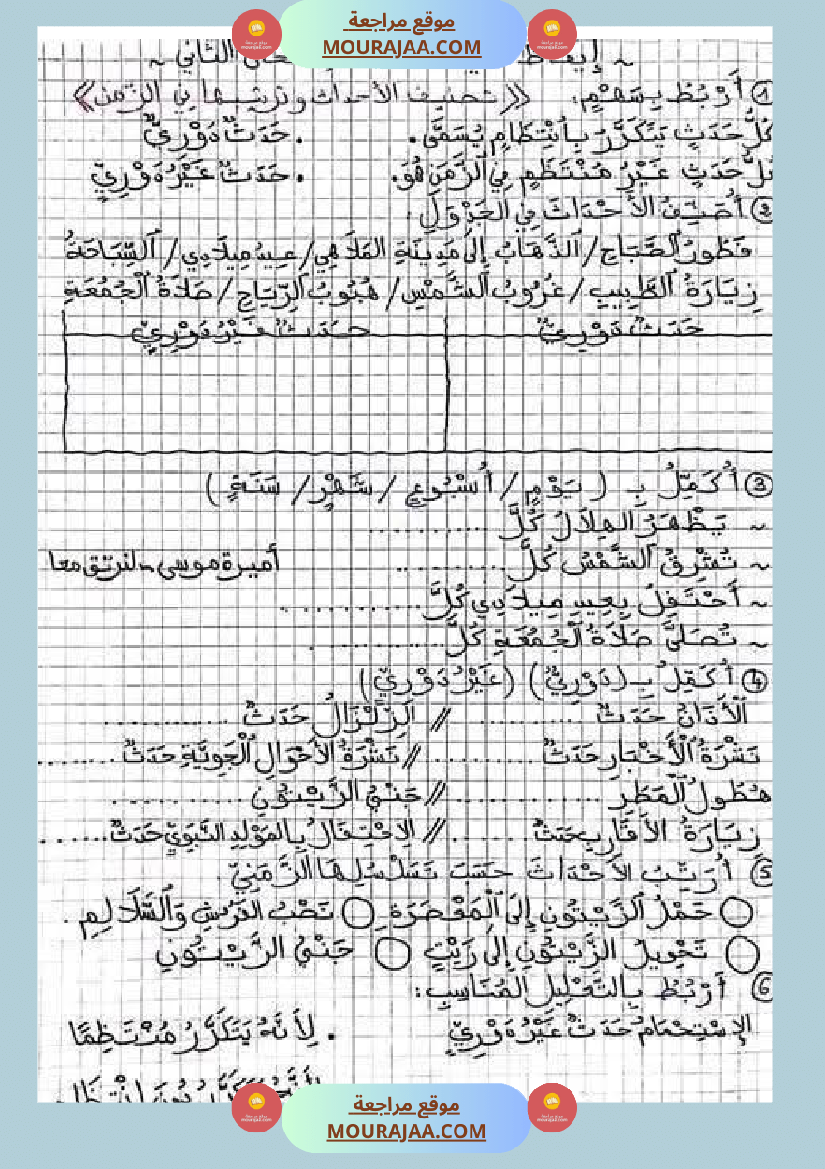 موقع مراجعة
MOURAJAA.COM
الثاني ~
① أَرْبُطُ بِسَهْمٍ: 《تصنيف الأحداث وترتيبها في الزمن》
كُلُّ حَدَثٍ يَتَكَرَّرُ بِٱنْتِظَامٍ يُسَمَّى. . حَدَثٌ دَوْرِيٌّ
كُلُّ حَدَثٍ غَيْرُ مُنْتَظَمٍ فِي ٱلزَّمَنِ هُوَ. . حَدَثٌ غَيْرُ دَوْرِيٍّ
② أُصَنِّفُ الأَحْدَاثَ فِي الجَدْوَلِ:
فَطُورُ ٱلصَّبَاحِ / ٱلذَّهَابُ إِلَى مَدِينَةِ المَلَاهِي / عِيدُ مِيلَادِي / ٱلسِّبَاحَةُ
زِيَارَةُ ٱلطَّبِيبِ / غُرُوبُ ٱلشَّمْسِ / هُبُوبُ ٱلرِّيَاحِ / صَلَاةُ ٱلْجُمُعَةِ
حَدَثٌ دَوْرِيٌّ حَدَثٌ غَيْرُ دَوْرِيٍّ
③ أُكَمِّلُ بِـ ( يَوْمٍ / أُسْبُوعٍ / شَهْرٍ / سَنَةٍ )
~ يَظْهَرُ الهِلَالُ كُلَّ ............
~ تُشْرِقُ ٱلشَّمْسُ كُلَّ............ أميرة موسى ~ لنرتق معا
~ أَحْتَفِلُ بِعِيدِ مِيلَادِي كُلَّ............
~ تُصَلَّى صَلَاةُ ٱلْجُمُعَةِ كُلَّ............
④ أُكَمِّلُ بِـ (دَوْرِيٌّ) (غَيْرُ دَوْرِيٍّ)
ٱلْأَذَانُ حَدَثٌ ............ // ٱلزِّلْزَالُ حَدَثٌ ............
نَشْرَةُ ٱلْأَخْبَارِ حَدَثٌ............ // نَشْرَةُ الأَحْوَالِ ٱلْجَوِيَّةِ حَدَثٌ........
هُطُولُ ٱلْمَطَرِ ............ // جَنْيُ الزَّيْتُونِ ............
زِيَارَةُ الأَقَارِبِ حَدَثٌ ........ // الِاحْتِفَالُ بِالمَوْلِدِ النَّبَوِيِّ حَدَثٌ........
⑤ أُرَتِّبُ الأَحْدَاثَ حَسَبَ تَسَلْسُلِهَا ٱلزَّمَنِيِّ.
◯ حَمْلُ ٱلزَّيْتُونِ إِلَى ٱلْمَعْصَرَةِ ◯ نَصْبُ الفُرُشِ وَٱلسَّلَالِمِ.
◯ تَحْوِيلُ الزَّيْتُونِ إِلَى زَيْتٍ ◯ جَنْيُ الزَّيْتُونِ
⑥ أَرْبُطُ بِالتَّعْلِيلِ المُنَاسِبِ:
الِاسْتِحْمَامُ حَدَثٌ غَيْرُ دَوْرِيٍّ . لِأَنَّهُ يَتَكَرَّرُ مُنْتَظِمًا
موقع مراجعة
MOURAJAA.COM